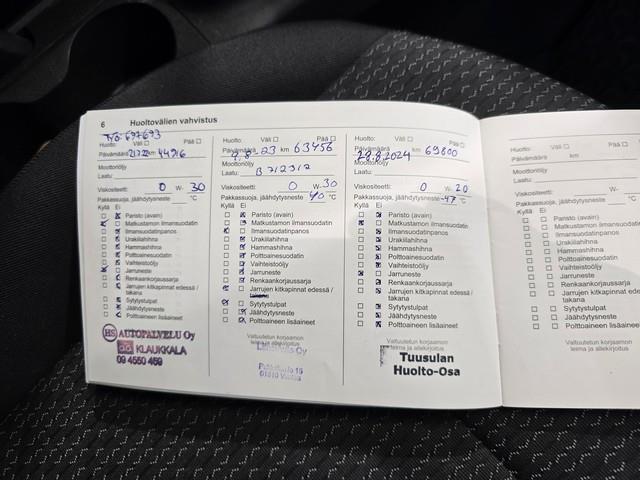 6 Huoltovälien vahvistus
Työ: 697693
Huolto: Väli Pää
Päivämäärä km 44916
Moottoriöljy
Laatu:
Viskositeetti: 0 W- 30
Pakkassuoja, jäähdytysneste °C
Kyllä Ei
Paristo (avain)
Matkustamon ilmansuodatin
Ilmansuodatinpanos
Urakiilahihna
Hammashihna
Polttoainesuodatin
Vaihteistoöljy
Jarruneste
Renkaankorjaussarja
Jarrujen kitkapinnat edessä /
takana
Sytytystulpat
Jäähdytysneste
Polttoaineen lisäaineet
HS AUTOPALVELU Oy
KLAUKKALA
09 4550 459
Huolto: Väli Pää
Päivämäärä 9.8.23 km 63456
Moottoriöljy
Laatu: B 712312
Viskositeetti: 0 W- 30
Pakkassuoja, jäähdytysneste 40 °C
Kyllä Ei
Paristo (avain)
Matkustamon ilmansuodatin
Ilmansuodatinpanos
Urakiilahihna
Hammashihna
Polttoainesuodatin
Vaihteistoöljy
Jarruneste
Renkaankorjaussarja
Jarrujen kitkapinnat edessä /
takana
Sytytystulpat
Jäähdytysneste
Polttoaineen lisäaineet
Valtuutetun korjaamon
leima ja allekirjoitus
Oy
Huolto: Väli Pää
Päivämäärä 28.8.2024 km 69800
Moottoriöljy
Laatu:
Viskositeetti: 0 W- 20
Pakkassuoja, jäähdytysneste -47 °C
Kyllä Ei
Paristo (avain)
Matkustamon ilmansuodatin
Ilmansuodatinpanos
Urakiilahihna
Hammashihna
Polttoainesuodatin
Vaihteistoöljy
Jarruneste
Renkaankorjaussarja
Jarrujen kitkapinnat edessä /
takana
Sytytystulpat
Jäähdytysneste
Polttoaineen lisäaineet
Valtuutetun korjaamon
leima ja allekirjoitus
Tuusulan
Huolto-Osa
Huolto: Väli
Päivämäärä km
Moottoriöljy
Laatu:
Viskositeetti:
Pakkassuoja, jäähdytysneste
Kyllä Ei
Paristo (avain)
Matkustamon ilmansuodatin
Ilmansuodatinpanos
Urakiilahihna
Hammashihna
Polttoainesuodatin
Vaihteistoöljy
Jarruneste
Renkaankorjaussarja
Jarrujen kitkapinnat edessä /
takana
Sytytystulpat
Jäähdytysneste
Polttoaineen lisäaineet
Valtuutetun korjaamon
leima ja allekirjoitus